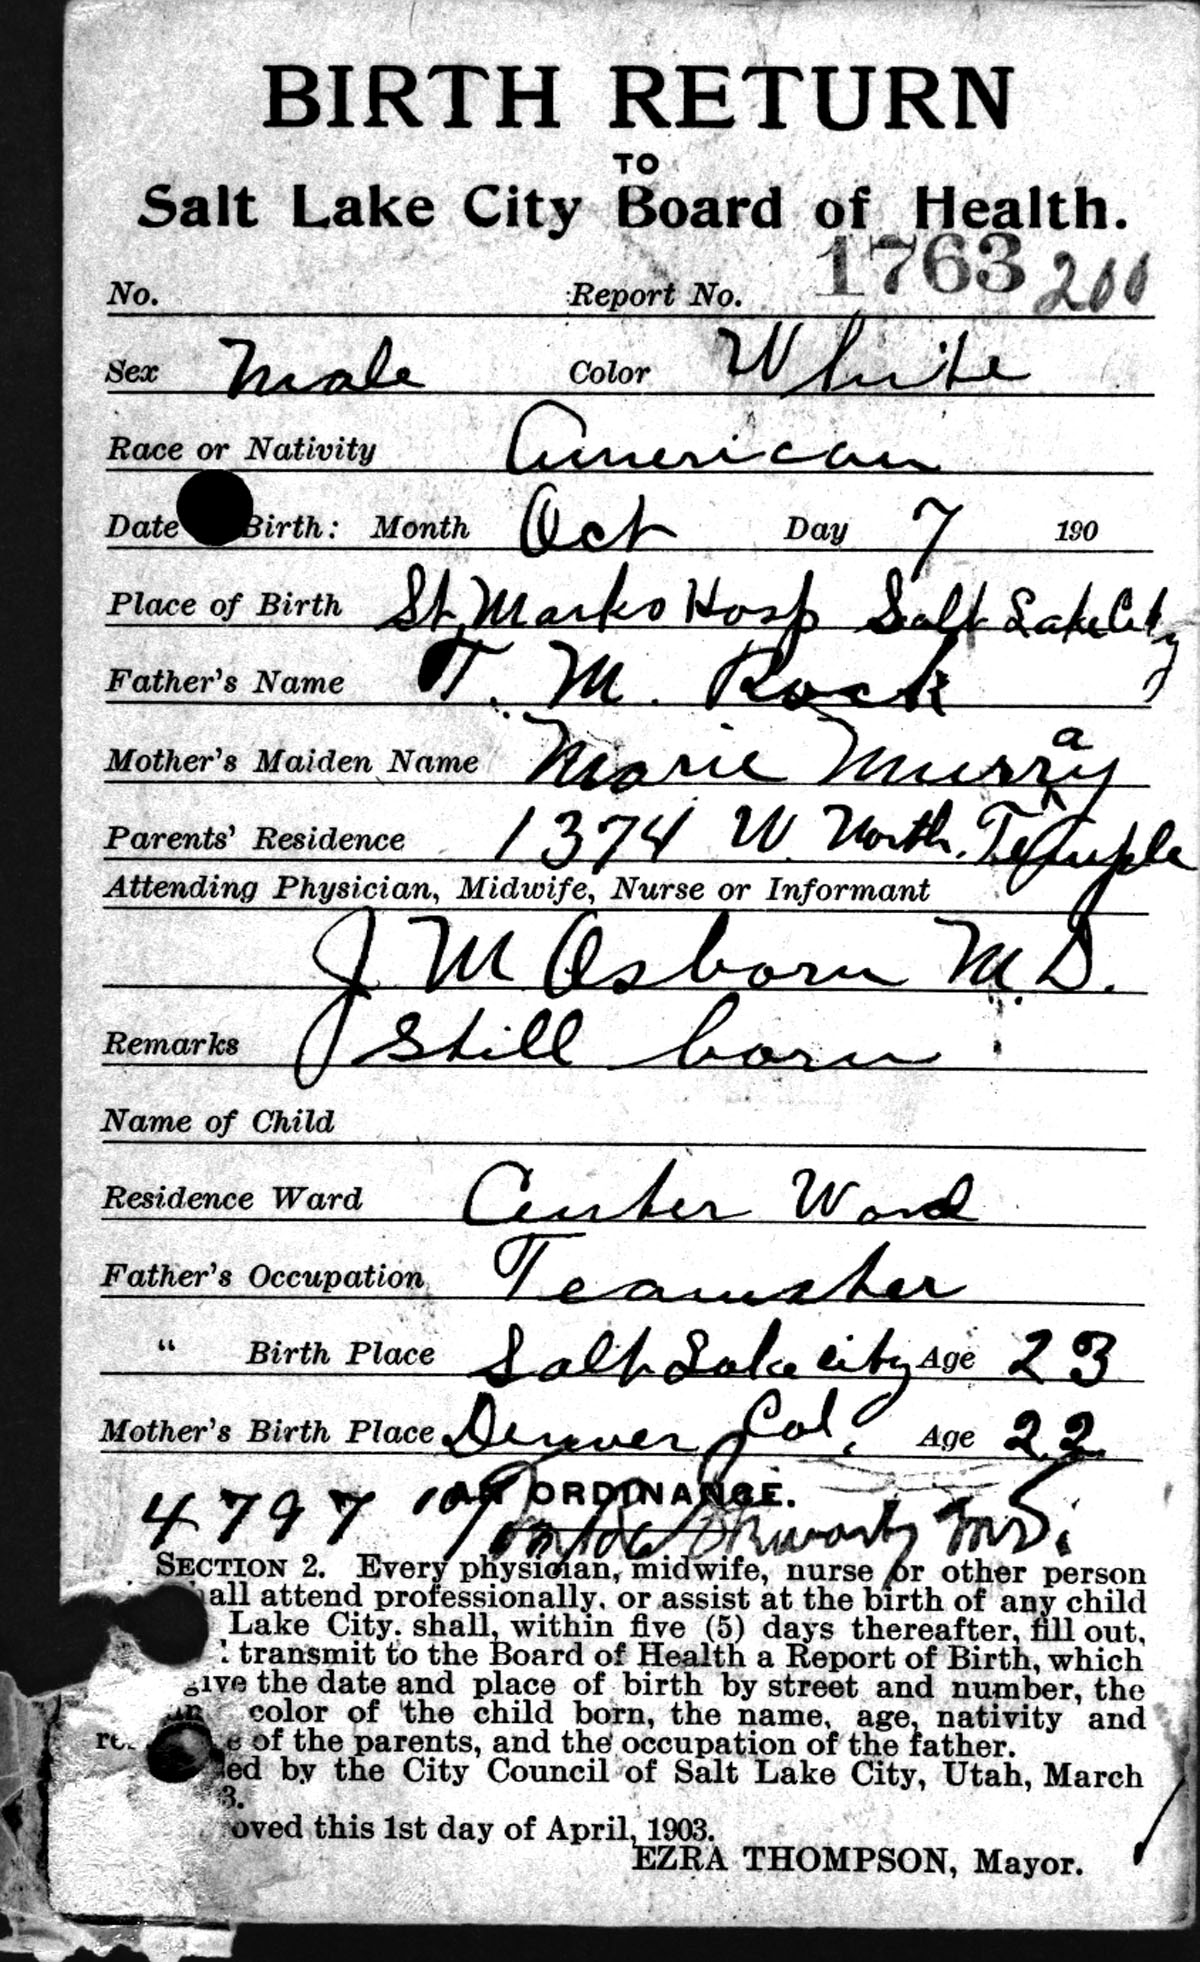 BIRTH RETURN
TO
Salt Lake City Board of Health.
No. Report No. 1763 200
Sex Male Color White
Race or Nativity American
Date Birth: Month Oct Day 7 190
Place of Birth St. Marks Hosp Salt Lake City
Father's Name T. M. Rock
Mother's Maiden Name Marie Murray
Parents' Residence 1374 W. North. Temple
Attending Physician, Midwife, Nurse or Informant
J M Osborn M.D.
Remarks Still born
Name of Child
Residence Ward Center Ward
Father's Occupation Teamster
" Birth Place Salt Lake city Age 23
Mother's Birth Place Denver Col. Age 22
AN ORDINANCE.
4797
SECTION 2. Every physician, midwife, nurse or other person
all attend professionally, or assist at the birth of any child
Lake City. shall, within five (5) days thereafter, fill out,
transmit to the Board of Health a Report of Birth, which
give the date and place of birth by street and number, the
color of the child born, the name, age, nativity and
of the parents, and the occupation of the father.
ed by the City Council of Salt Lake City, Utah, March
3.
oved this 1st day of April, 1903.
EZRA THOMPSON, Mayor.